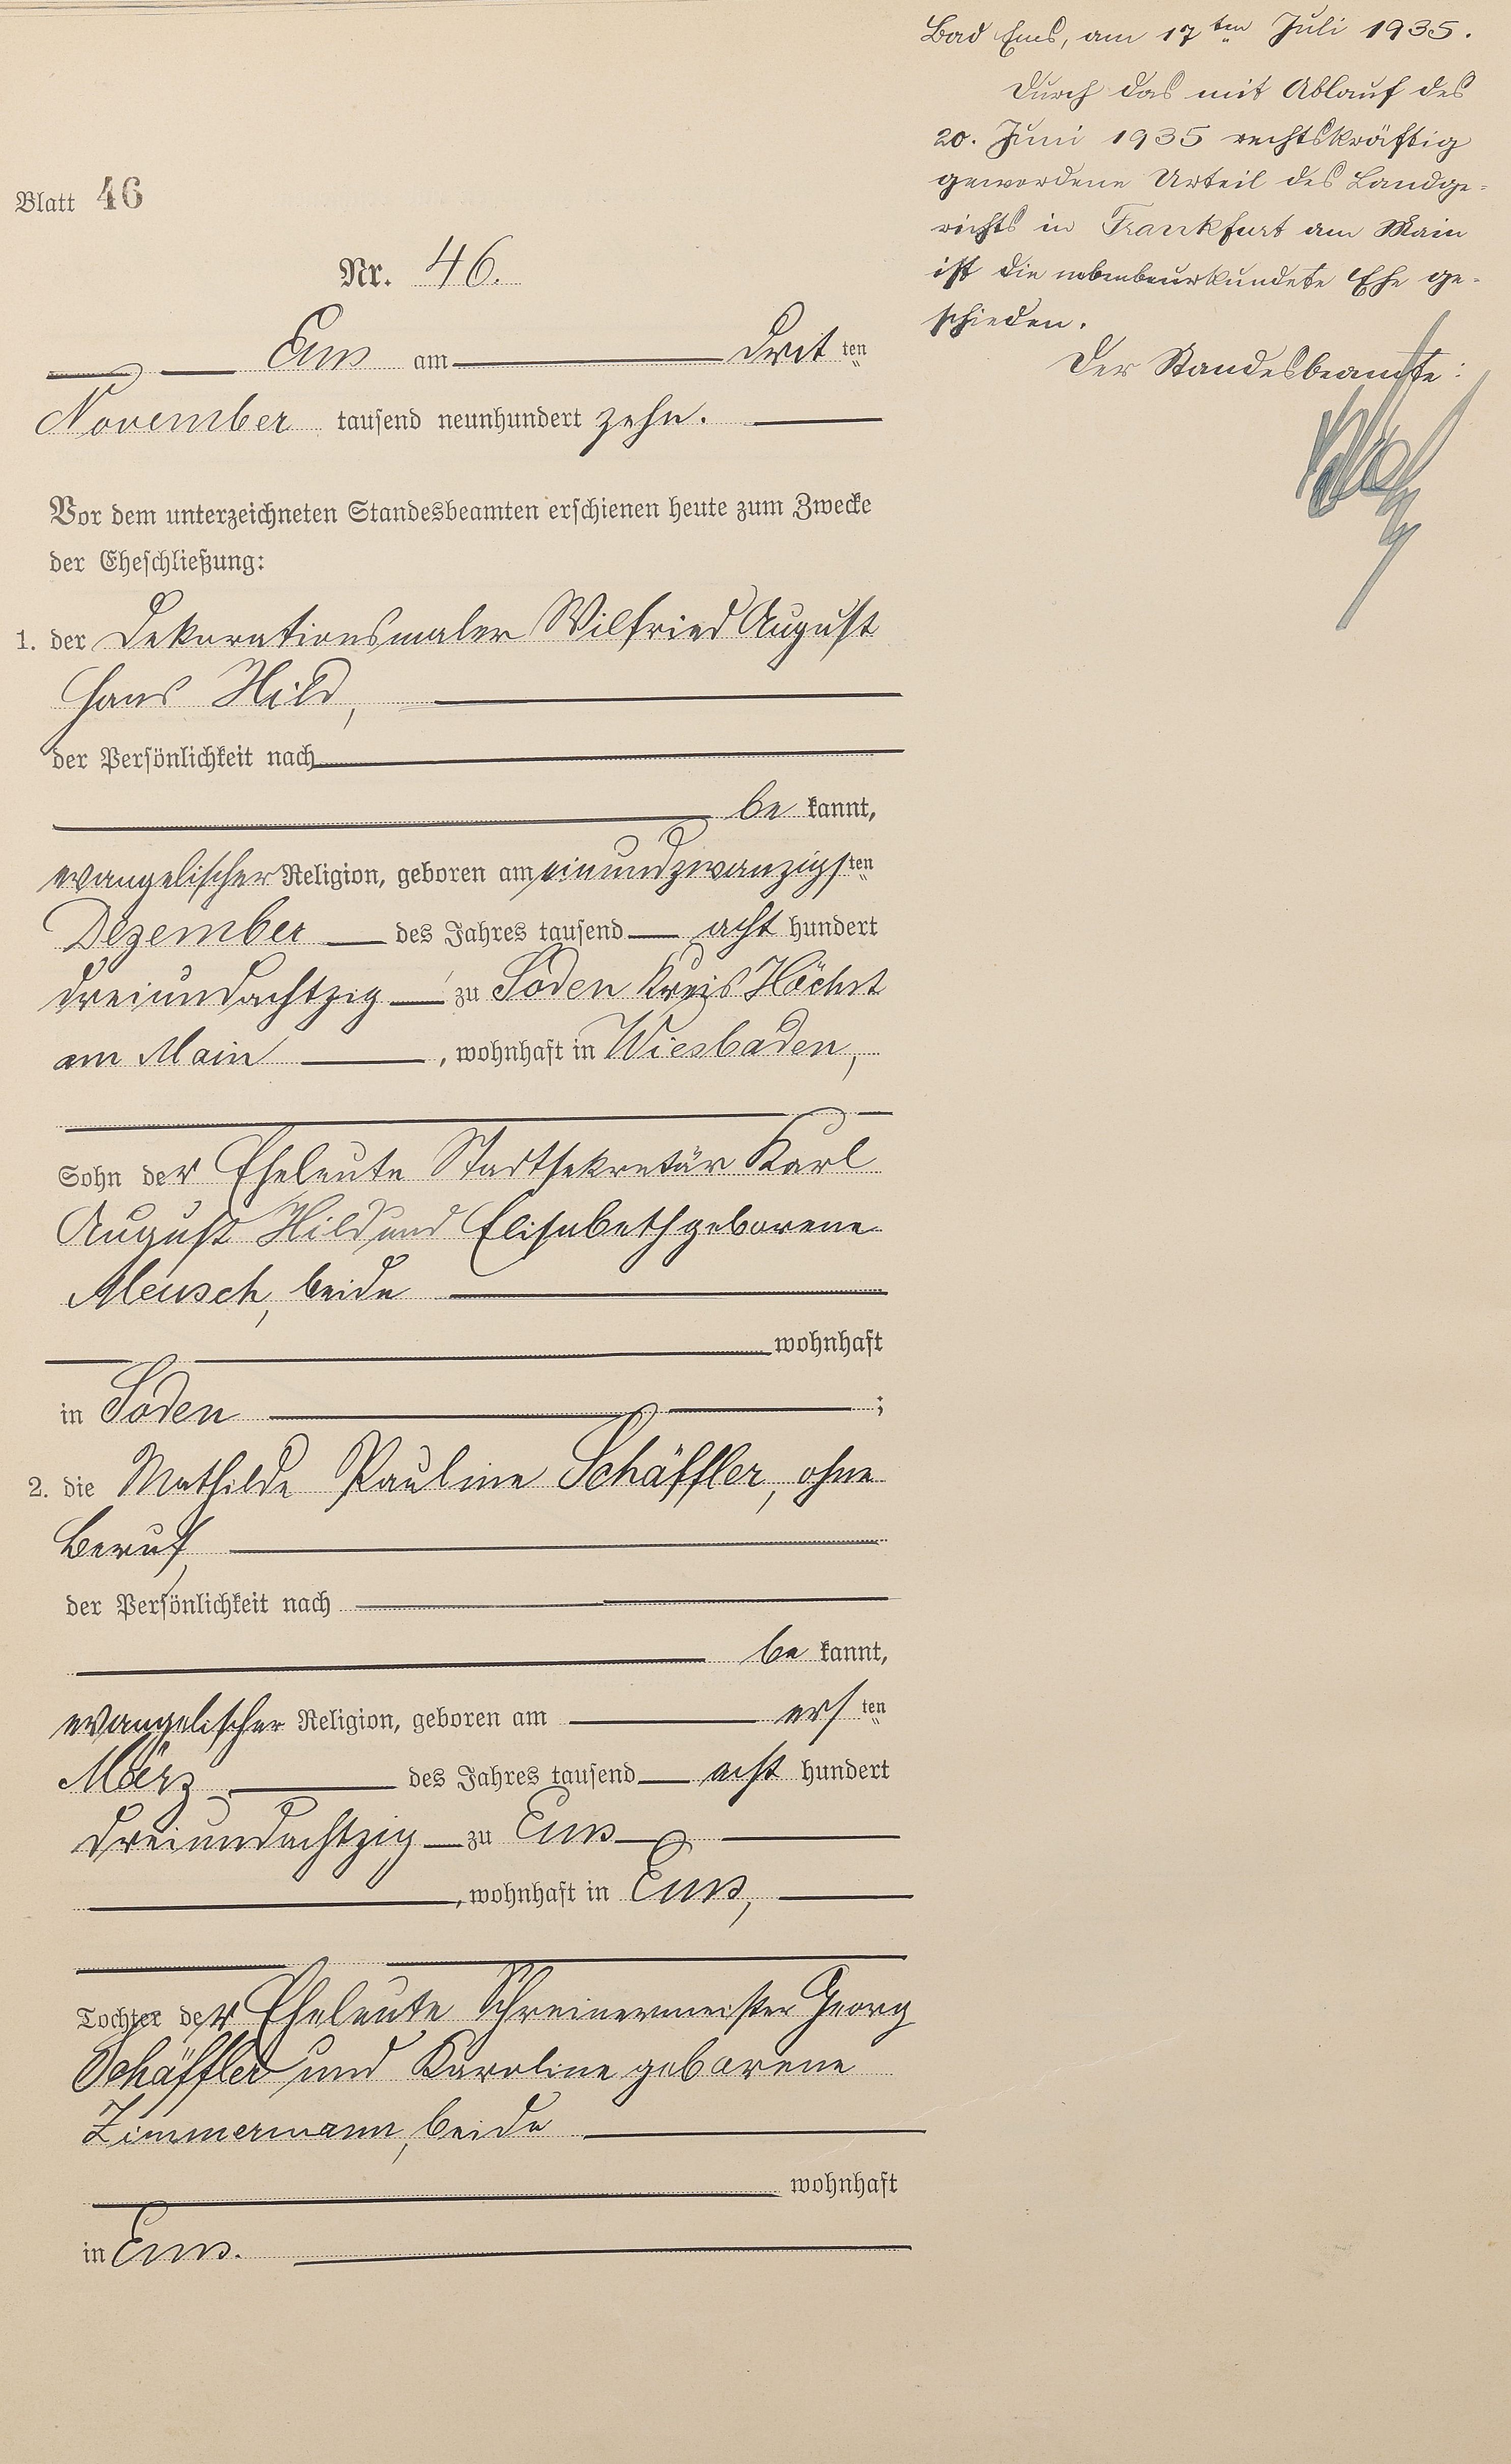 Blatt 46
Nr. 46.
Ems am dritten
November tausend neunhundert zehn.
Vor dem unterzeichneten Standesbeamten erschienen heute zum Zwecke
der Eheschließung:
1. der Dekorationsmaler Wilfried August
Hans Hild,
der Persönlichkeit nach
be kannt,
evangelischer Religion, geboren am einundzwanzigsten
Dezember des Jahres tausend acht hundert
dreiundachtzig zu Soden Kreis Höchst
am Main, wohnhaft in Wiesbaden,
Sohn der Eheleute Stadtsekretär Karl
August Hild und Elisabeth geborene
Meusch, beide
wohnhaft
in Soden ;
2. die Mathilde Pauline Schäffler, ohne
Beruf,
der Persönlichkeit nach
be kannt,
evangelischer Religion, geboren am ersten
März des Jahres tausend acht hundert
dreiundachtzig zu Ems
, wohnhaft in Ems,
Tochter der Eheleute Schreinermeister Georg
Schäffler und Karoline geborene
Zimmermann, beide
wohnhaft
in Ems.
Bad Ems, am 17ten Juli 1935.
Durch das mit Ablauf des
20. Juni 1935 rechtskräftig
gewordene Urteil des Landge-
richts in Frankfurt am Main
ist die nebenbeurkundete Ehe ge-
schieden.
Der Standesbeamte: